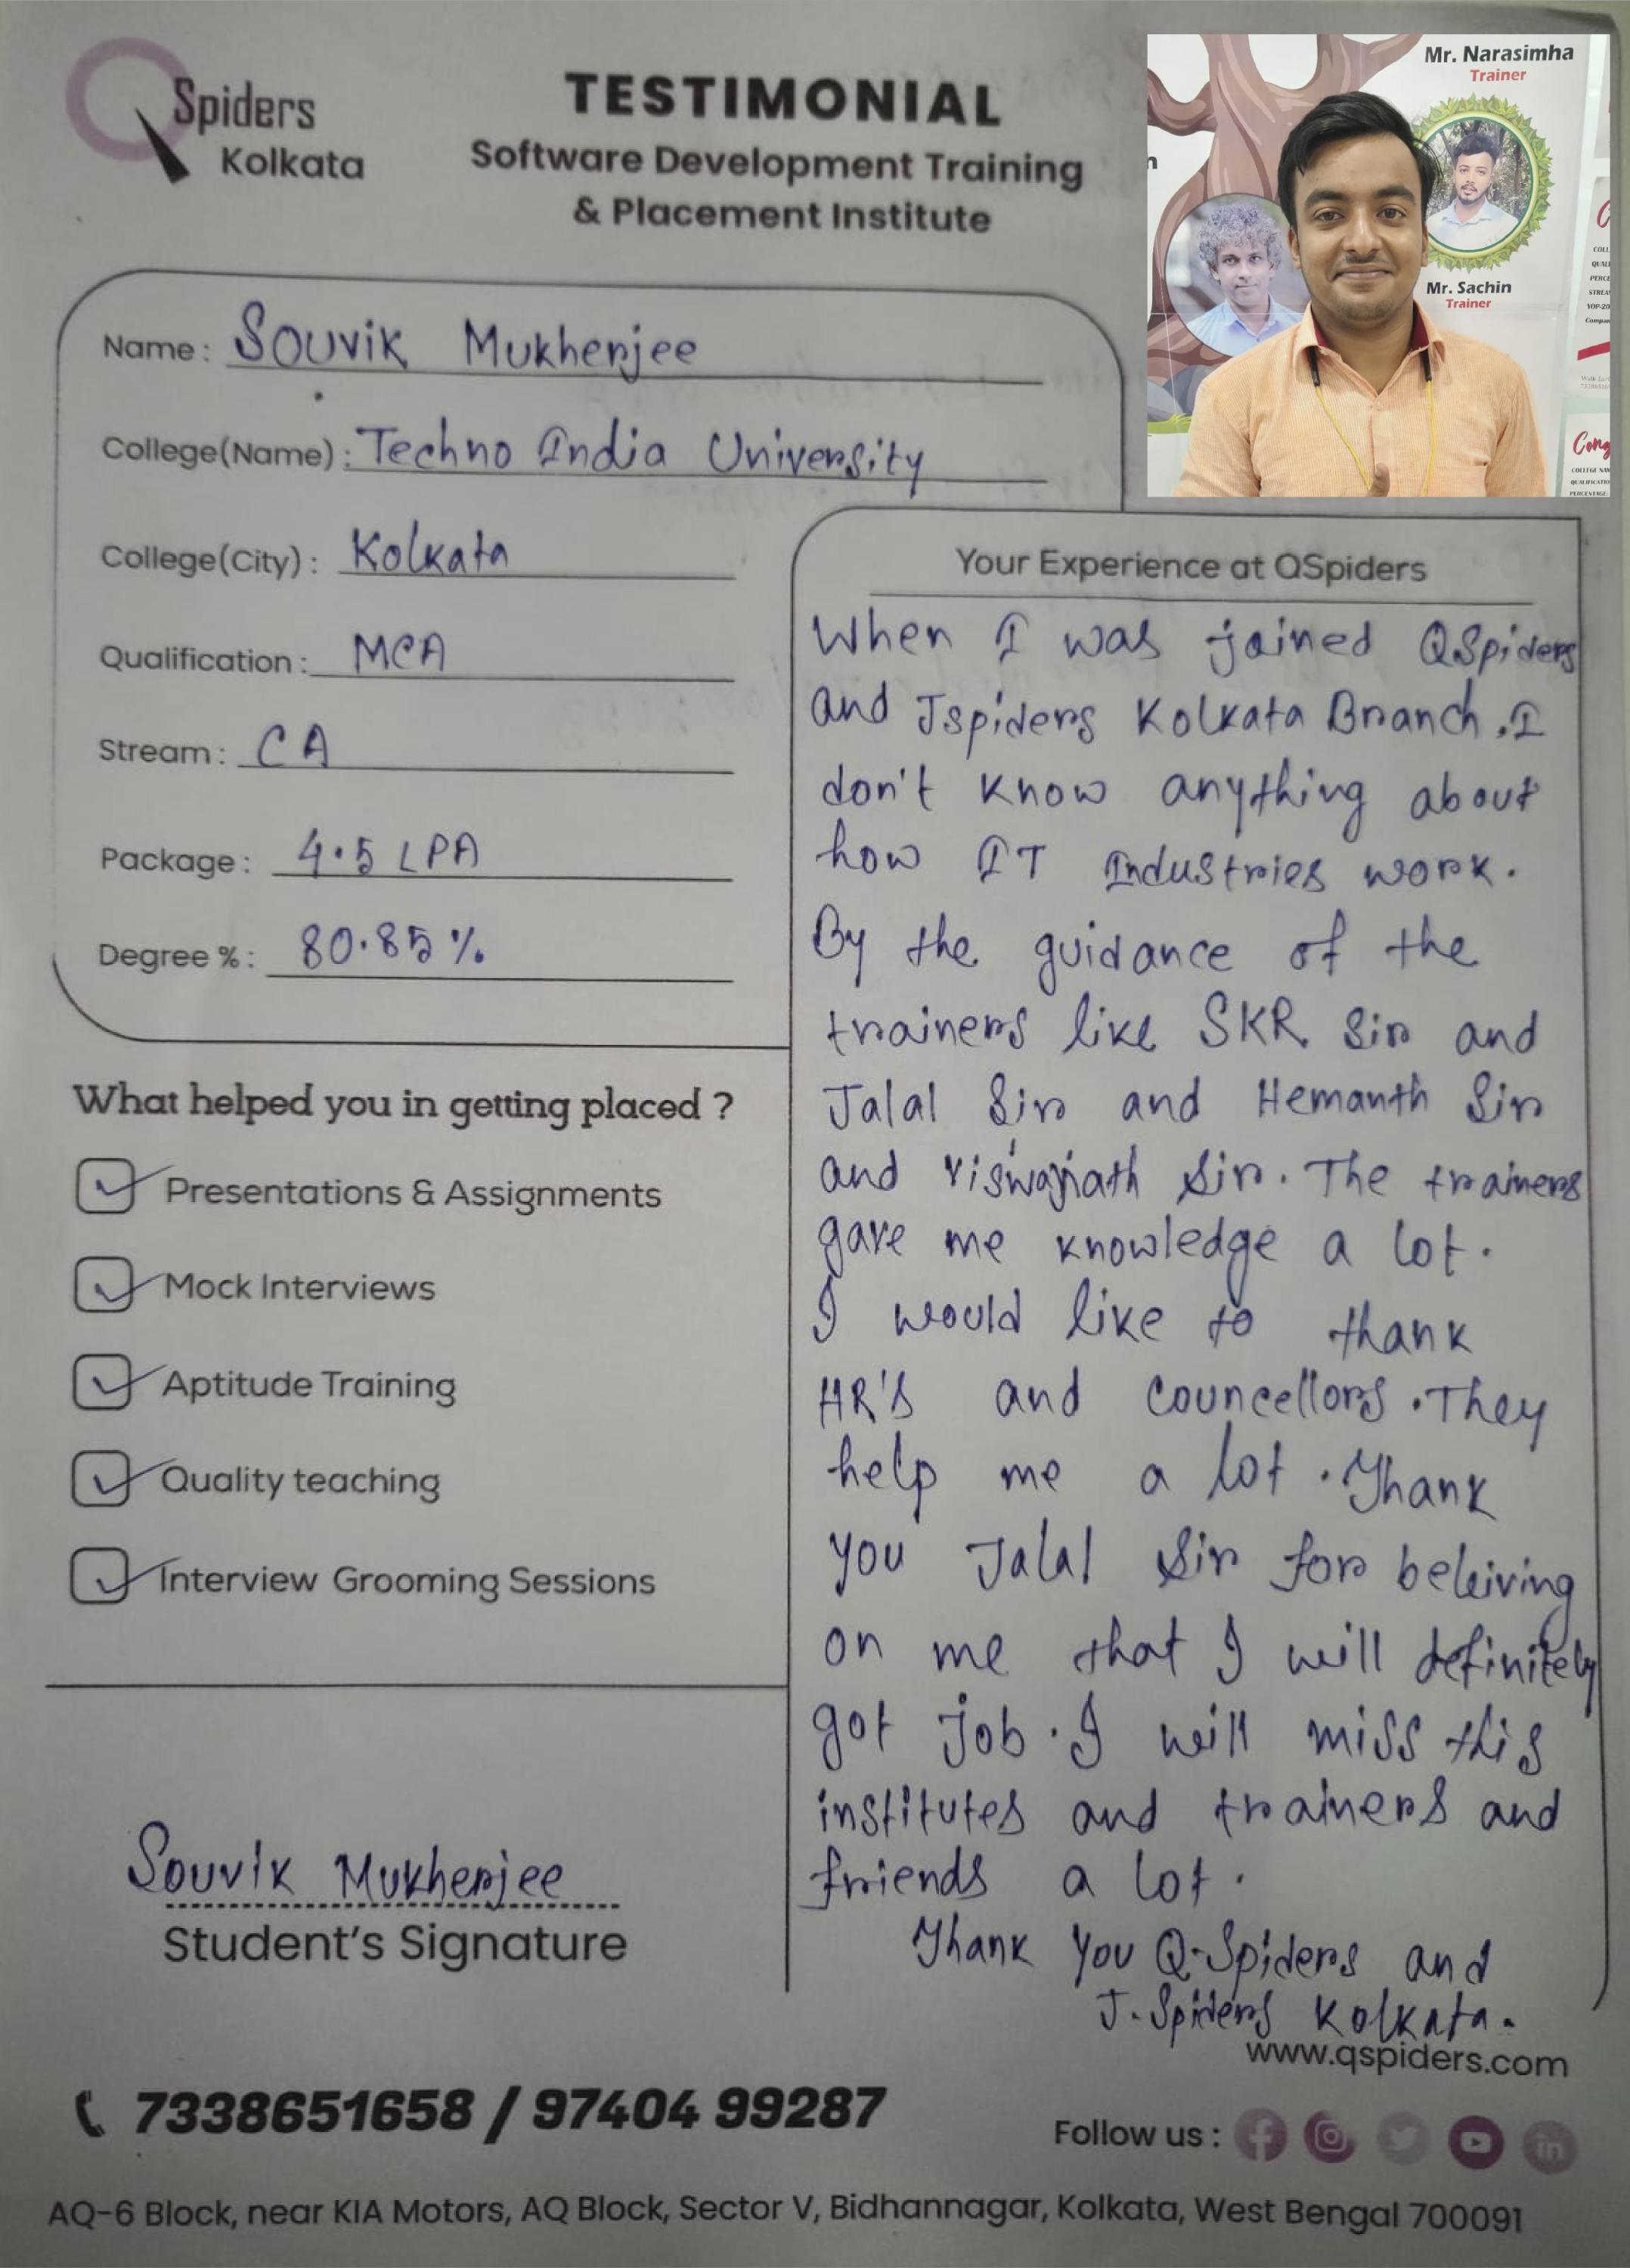 QSpiders
Kolkata
TESTIMONIAL
Software Development Training
& Placement Institute
Mr. Narasimha
Trainer
n
Mr. Sachin
Trainer
Name : Souvik Mukherjee
College(Name) : Techno India University
College(City) : Kolkata
Qualification : MCA
Stream : CA
Package : 4.5 LPA
Degree % : 80.85 %
What helped you in getting placed ?
Presentations & Assignments
Mock Interviews
Aptitude Training
Quality teaching
Interview Grooming Sessions
Souvik Mukherjee
Student's Signature
Your Experience at QSpiders
When I was joined QSpiders
and Jspiders Kolkata Branch. I
don't know anything about
how IT Industries work.
By the guidance of the
trainers like SKR Sir and
Jalal Sir and Hemanth Sir
and Viswajnath Sir. The trainers
gave me knowledge a lot.
I would like to thank
HR's and councellors. They
help me a lot. Thank
you Jalal Sir for beleiving
on me that I will definitely
got job. I will miss this
institutes and trainers and
friends a lot.
Thank You Q-Spiders and
J-Spiders Kolkata.
www.qspiders.com
7338651658 / 97404 99287
Follow us :
AQ-6 Block, near KIA Motors, AQ Block, Sector V, Bidhannagar, Kolkata, West Bengal 700091